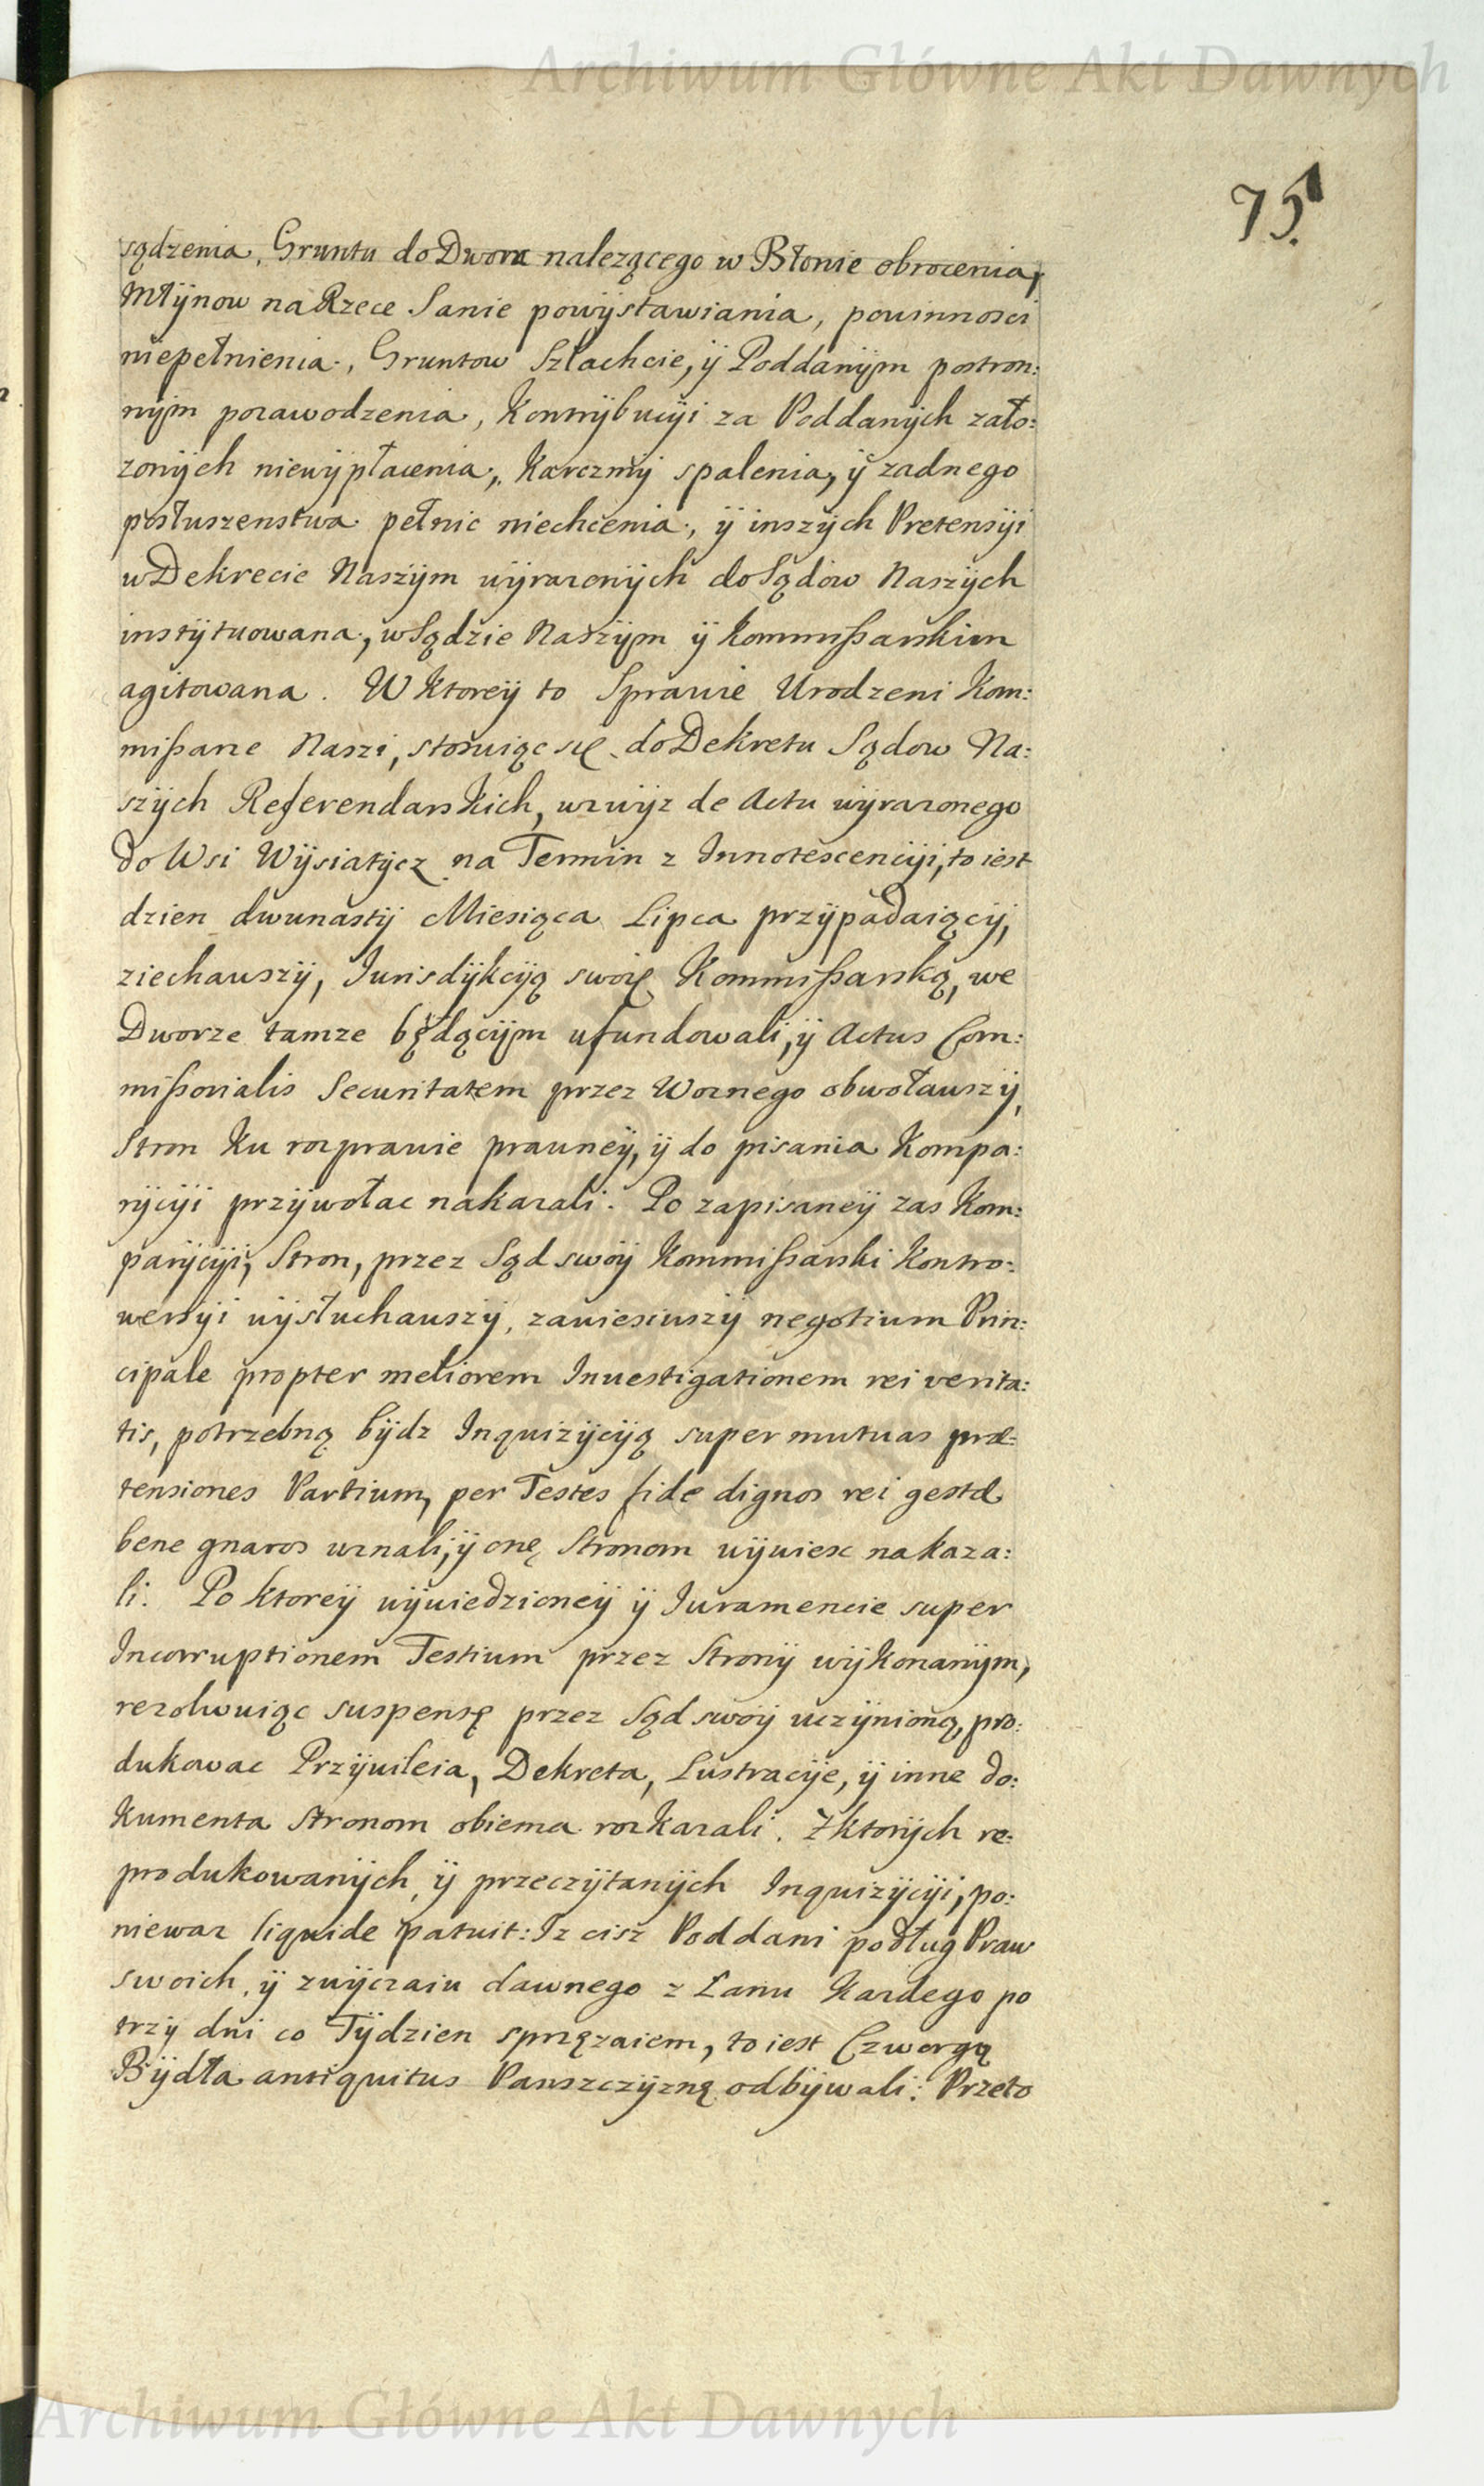 Archiwum Główne Akt Dawnych
75.
sądzenia, Gruntu do Dwora nalezącego w Błonie obrocenia,
Młÿnow na Rzece Sanie powÿstawiania, powinnosci
niepełnienia, Gruntow Szlachcie, ÿ Poddanÿm postron:
nÿm pozawodzenia, Kontrÿbucÿi za Poddanÿch zało:
zonÿch niewÿpłacenia, Karczmÿ spalenia, ÿ zadnego
posłuszenstwa pełnic niechcenia, ÿ inszÿch Pretensÿi
w Dekrecie Naszÿm wÿrazonÿch do Sądow Naszÿch
instÿtuowana, w Sądzie Naszÿm ÿ Kommißarskim
agitowana. W Ktoreÿ to Sprawie Urodzeni Kom:
mißarze Naszi, stosuiąc się do Dekretu Sądow Na:
szÿch Referendarskich, wzwÿz de Actu wÿrazonego
do Wsi Wÿsiatÿcz na Termin z Innotescencÿi, to iest
dzien dwunastÿ Miesiąca Lipca przÿpadaiącÿ,
ziechawszÿ, Iurisdÿkcÿą swoię Kommißarską, we
Dworze tamze będącÿm ufundowali, ÿ Actus Com:
mißorialis Securitatem przez Woznego obwoławszÿ,
Stron Ku rozprawie prawneÿ, ÿ do pisania Kompa:
rÿcÿi przÿwołac nakazali. Po zapisaneÿ zas Kom:
parÿcÿi, Stron, przez Sąd swoÿ Kommißarski Kontro:
wersÿi wÿsłuchawszÿ, zawiesiwszÿ negotium Prin:
cipale propter meliorem Investigationem rei verita:
tis, potrzebną bÿdz Inquizÿcÿą super mutuas præ:
tensiones Partium, per Testes fide dignos rei gestæ
bene gnaros uznali, ÿ onę Stronom wÿwiesc nakaza:
li. Po ktoreÿ wÿwiedzioneÿ ÿ Iuramencie super
Incorruptionem Testium przez Stronÿ wÿkonanÿm,
rezolwuiąc suspensę przez Sąd swoÿ uczÿnioną, pro:
dukowac Przÿwileia, Dekreta, Lustracÿe, ÿ inne do:
kumenta Stronom obiema rozkazali. Z ktorÿch re:
produkowanÿch ÿ przeczÿtanÿch Inquizÿcÿi, po:
niewaz liquide patuit: Iz cisz Poddani podług Praw
swoich, ÿ zwÿczaiu dawnego z Łanu Kazdego po
trzÿ dni co Tÿdzien sprzęzaiem, to iest Czworgą
Bÿdła antiquitus Panszczÿznę odbÿwali: Przeto
Archiwum Główne Akt Dawnych